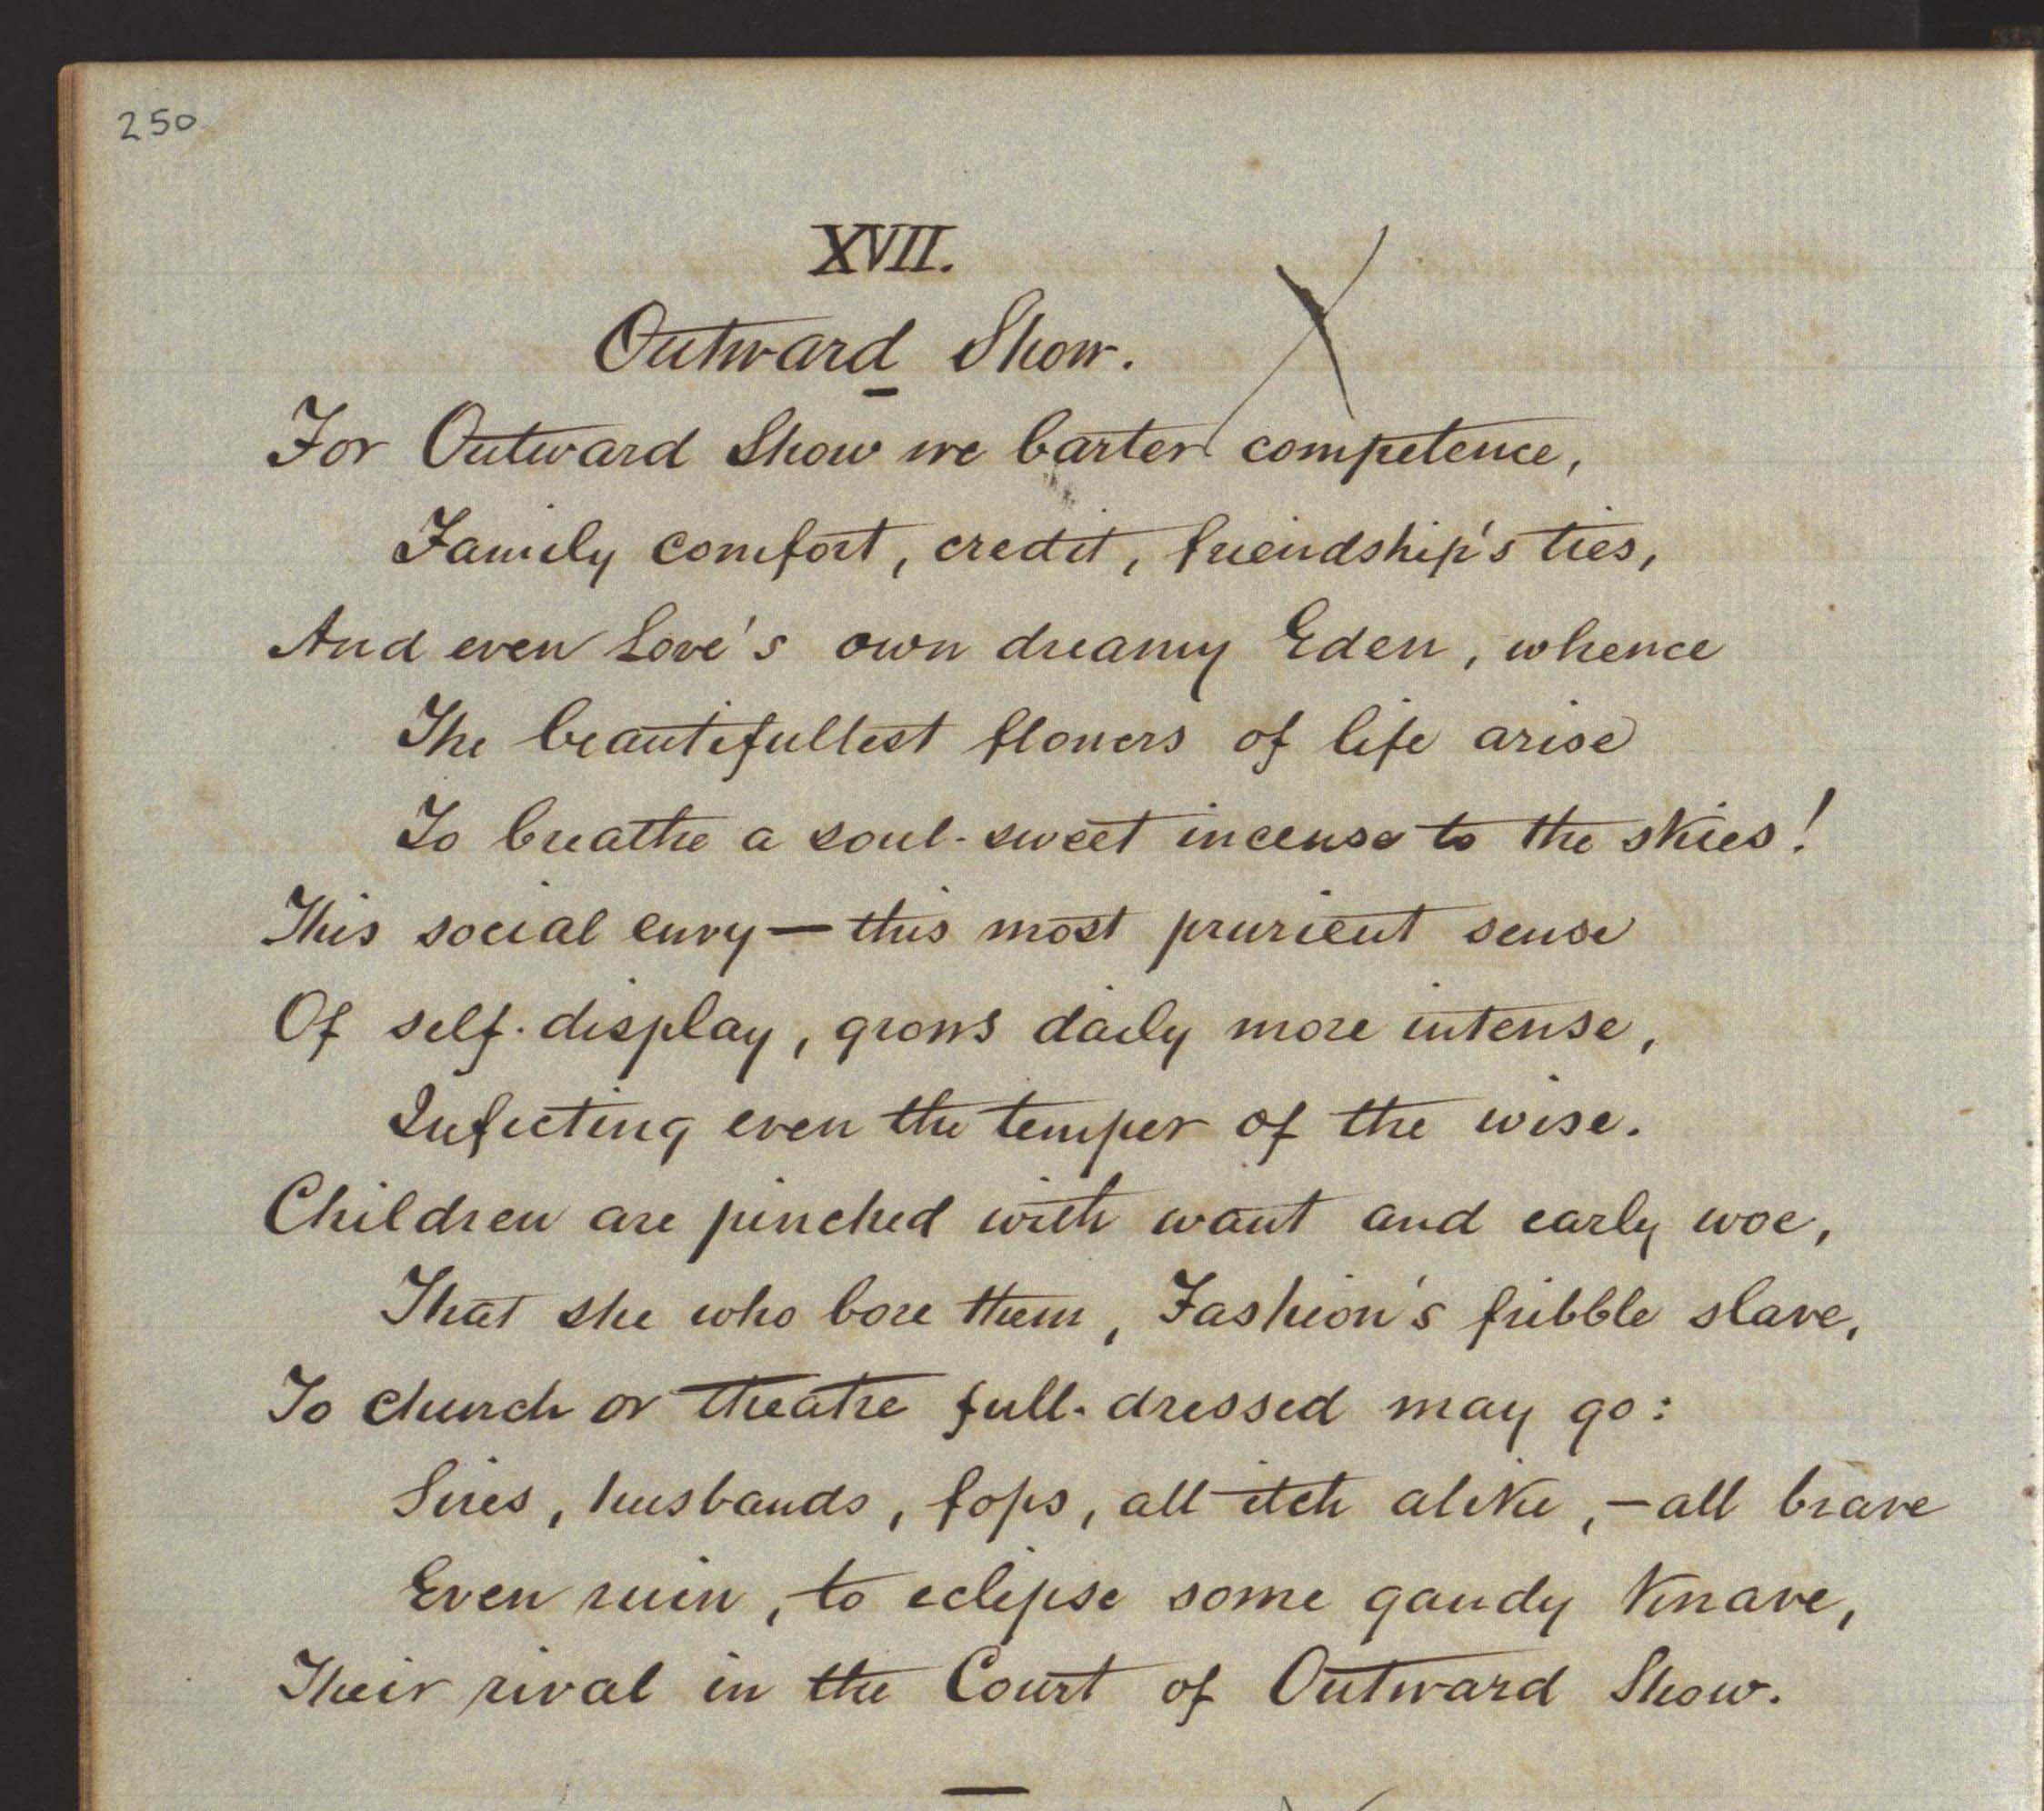 250
XVII.
Outward Show.
For Outward Show we barter competence,
Family comfort, credit, friendship's ties,
And even Love's own dreamy Eden, whence
The beautifullest flowers of life arise
To breathe a soul-sweet incense to the skies!
This social envy — this most prurient sense
Of self-display, grows daily more intense,
Infecting even the temper of the wise.
Children are pinched with want and early woe,
That she who bore them, Fashion's fribble slave,
To church or theatre full-dressed may go:
Sires, husbands, fops, all itch alike, — all brave
Even ruin, to eclipse some gaudy knave,
Their rival in the Court of Outward Show.